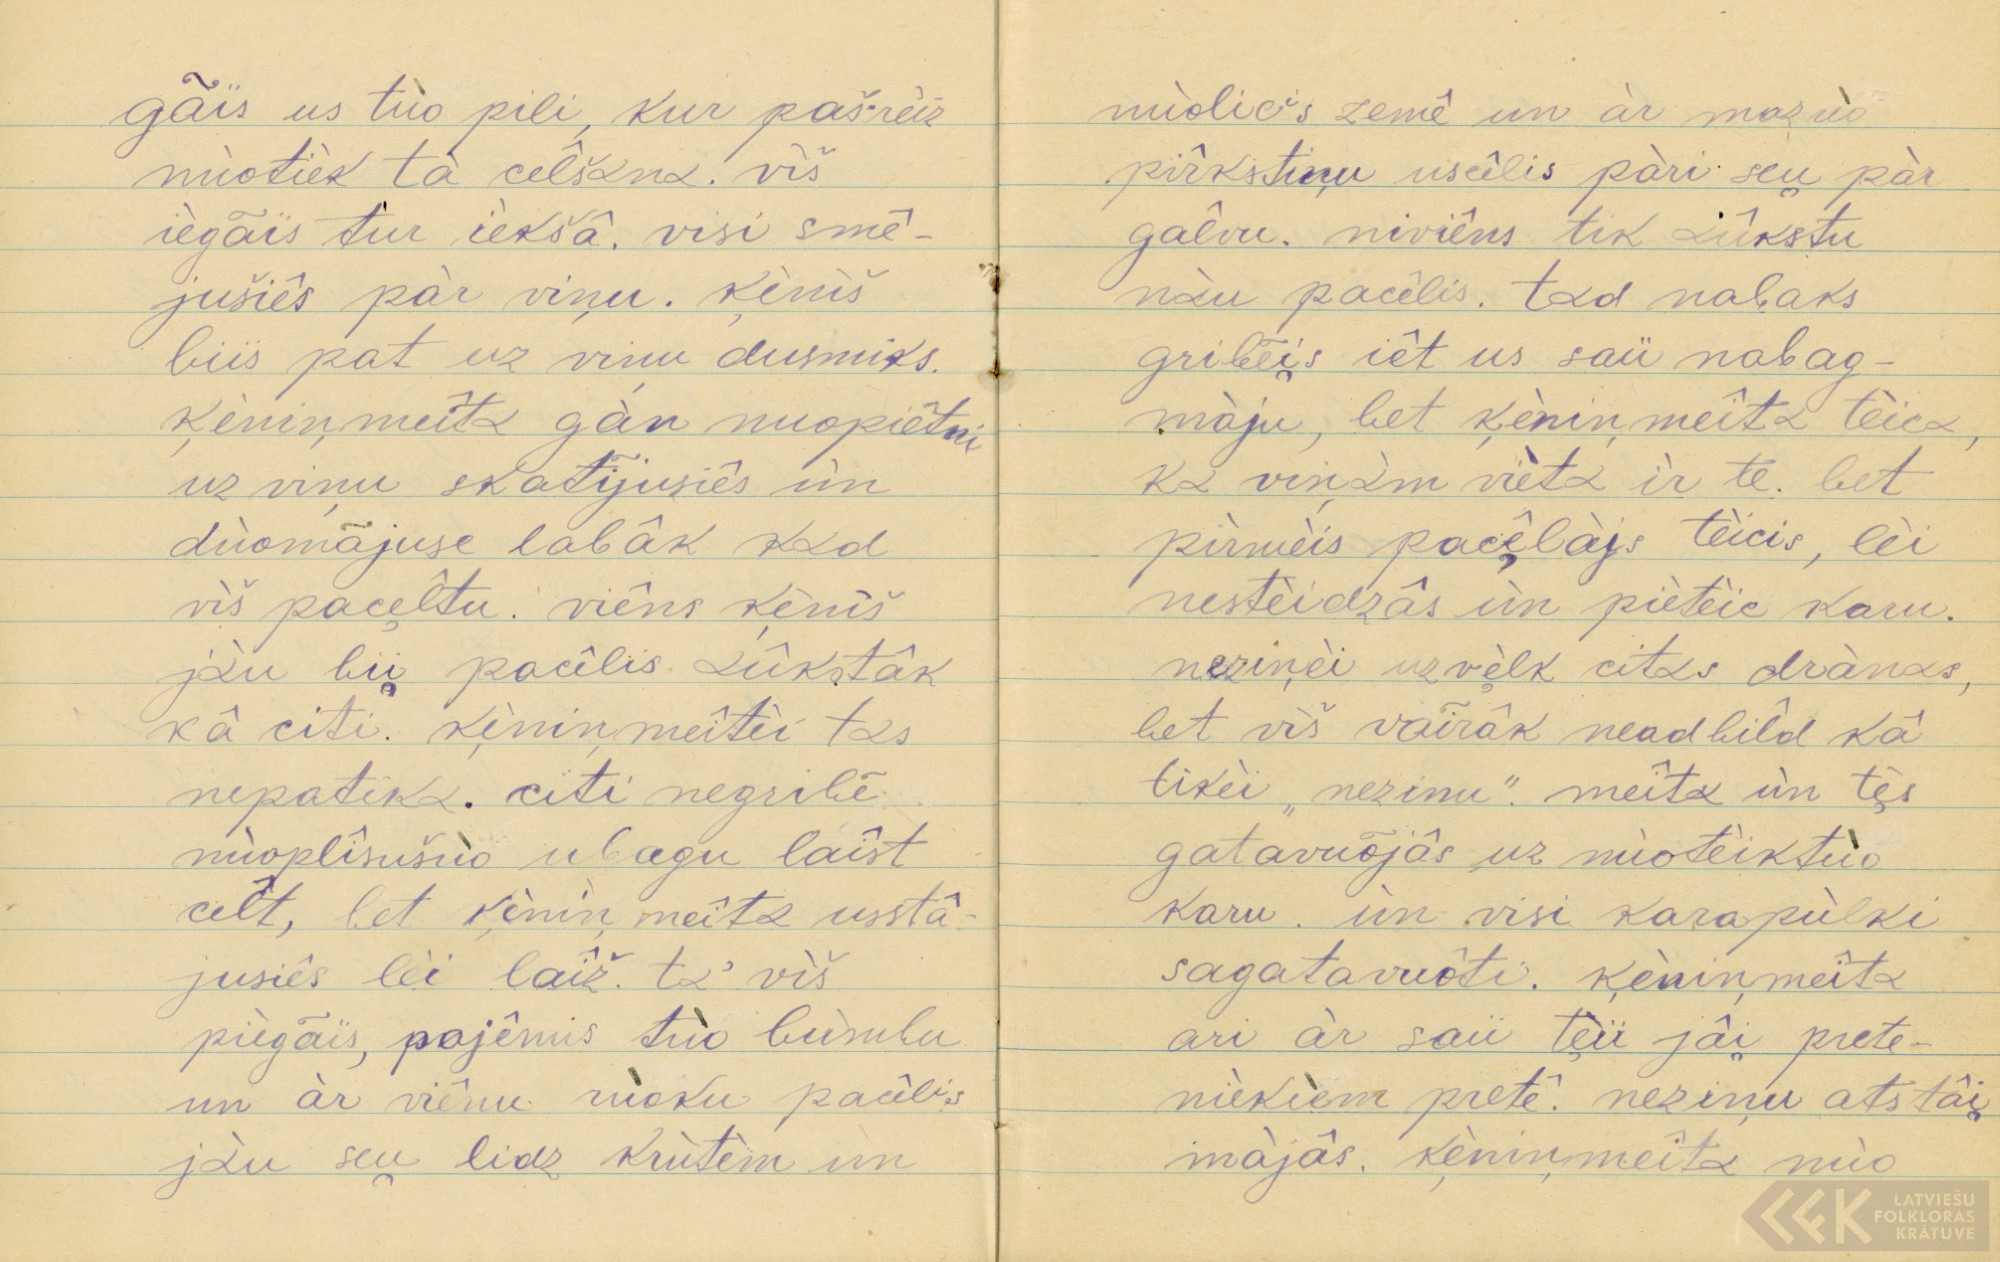 gãis us tùo pili, kur pašrèiz
nùotièk tà cêlšαnα. vìš
iègãis tur ìekšâ. visi smê-
jušiês pàr viņu. ķèniš
biis pat uz viņu dusmiks.
ķèniņmeîtα gàn nuopiêtni
uz viņu skatījusiês ùn
dùomãjuse labâk kαd
vìš pacel̂tu. viêns ķèniš
jàu bii̯ pacêlis αûkstâk
kâ citi. ķèniņmeîtèi tαs
nepatikα. citi negribē
nùoplîsušùo ubagu laîst
cel̂t, bet ķèniņmeîtα usstâ-
jusiês lèi laîž. tα' vìš
piègãis, pajêmis tùo bùmbu
un àr viênu rùoku pacêlis
jàu seu̯ lidz krùtèm ùn
nùolicis zemê un àr mazùo
pirkstiņu uscêlis pàri seu̯ pàr
gal̂vu. niviêns tik αûkstu
nàu pacêlis. tαd nabaks
gribẽi̯s iêt us saũ nabag-
màju, bet ķèniņmeîtα tèicα,
kα viņαm viètα ìr te. bet
pìrmèis pacêlàjs tèicis, lèi
nestèidzâs ùn pietèic karu.
neziņèi uzvèlk citαs dràņαs,
bet vìš vaĩrâk neadbild kâ
tikèi „nezinu". meîtα ùn tẹ̀s
gatavuõjâs uz nùotèiktùo
karu. ùn visi karapùlki
sagatavuôti. ķèniņmeîtα
ari àr saũ tẹ̀ũ jâi̯ prete-
niekìem pretê. neziņu atstâi̯
màjâs. ķèniņmeîtα nùo
LATVIEŠU
FOLKLORAS
KRĀTUVE